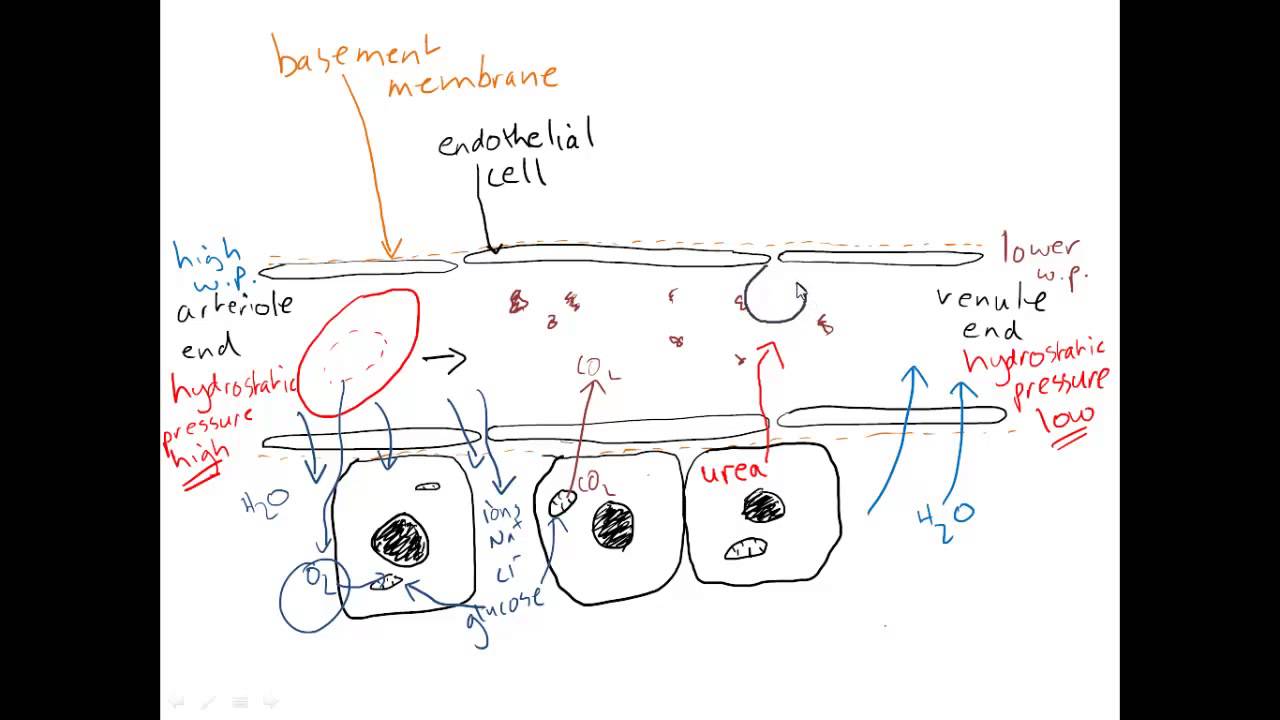 basement
membrane
endothelial
cell
high
w.p.
arteriole
end
hydrostatic
pressure
high
lower
w.p.
venule
end
hydrostatic
pressure
low
CO2
urea
CO2
H2O
ions
Na+
Cl-
H2O
O2
glucose